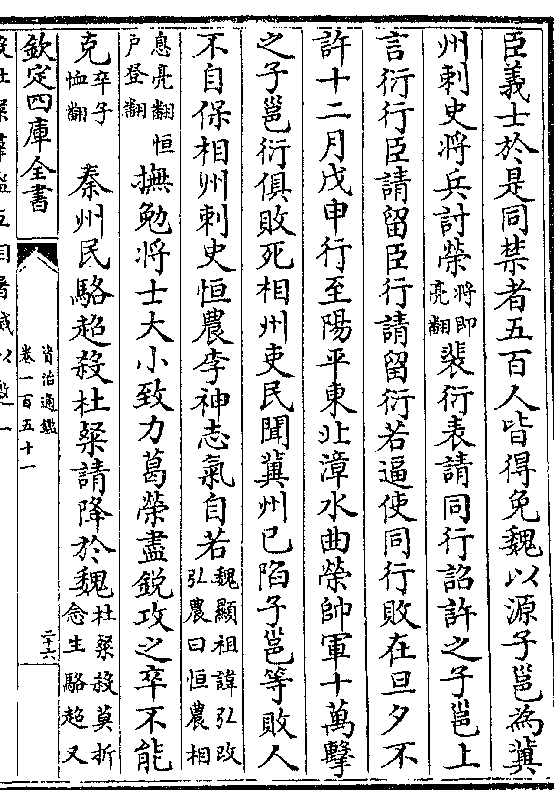 臣義士於是同禁者五百人皆得免魏以源子邕為冀
州刺史將兵討榮將即亮翻裴衍表請同行詔許之子邕上
言衍行臣請留臣行請留衍若逼使同行敗在旦夕不
許十二月戊申行至陽平東北漳水曲榮帥軍十萬擊
之子邕衍俱敗死相州吏民聞冀州已陷子邕等敗人
不自保相州刺史恒農李神志氣自若魏顯祖諱弘改弘農曰恒農相
息亮翻恒戶登翻撫勉將士大小致力葛榮盡銳攻之卒不能
克卒子恤翻 秦州民駱超殺杜粲請降於魏杜粲殺莫折念生駱超又
欽定四庫全書
資治通鑑
卷一百五十一
二十六